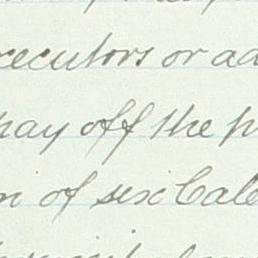 xecutors or ad
pay off the p
n of six Cale